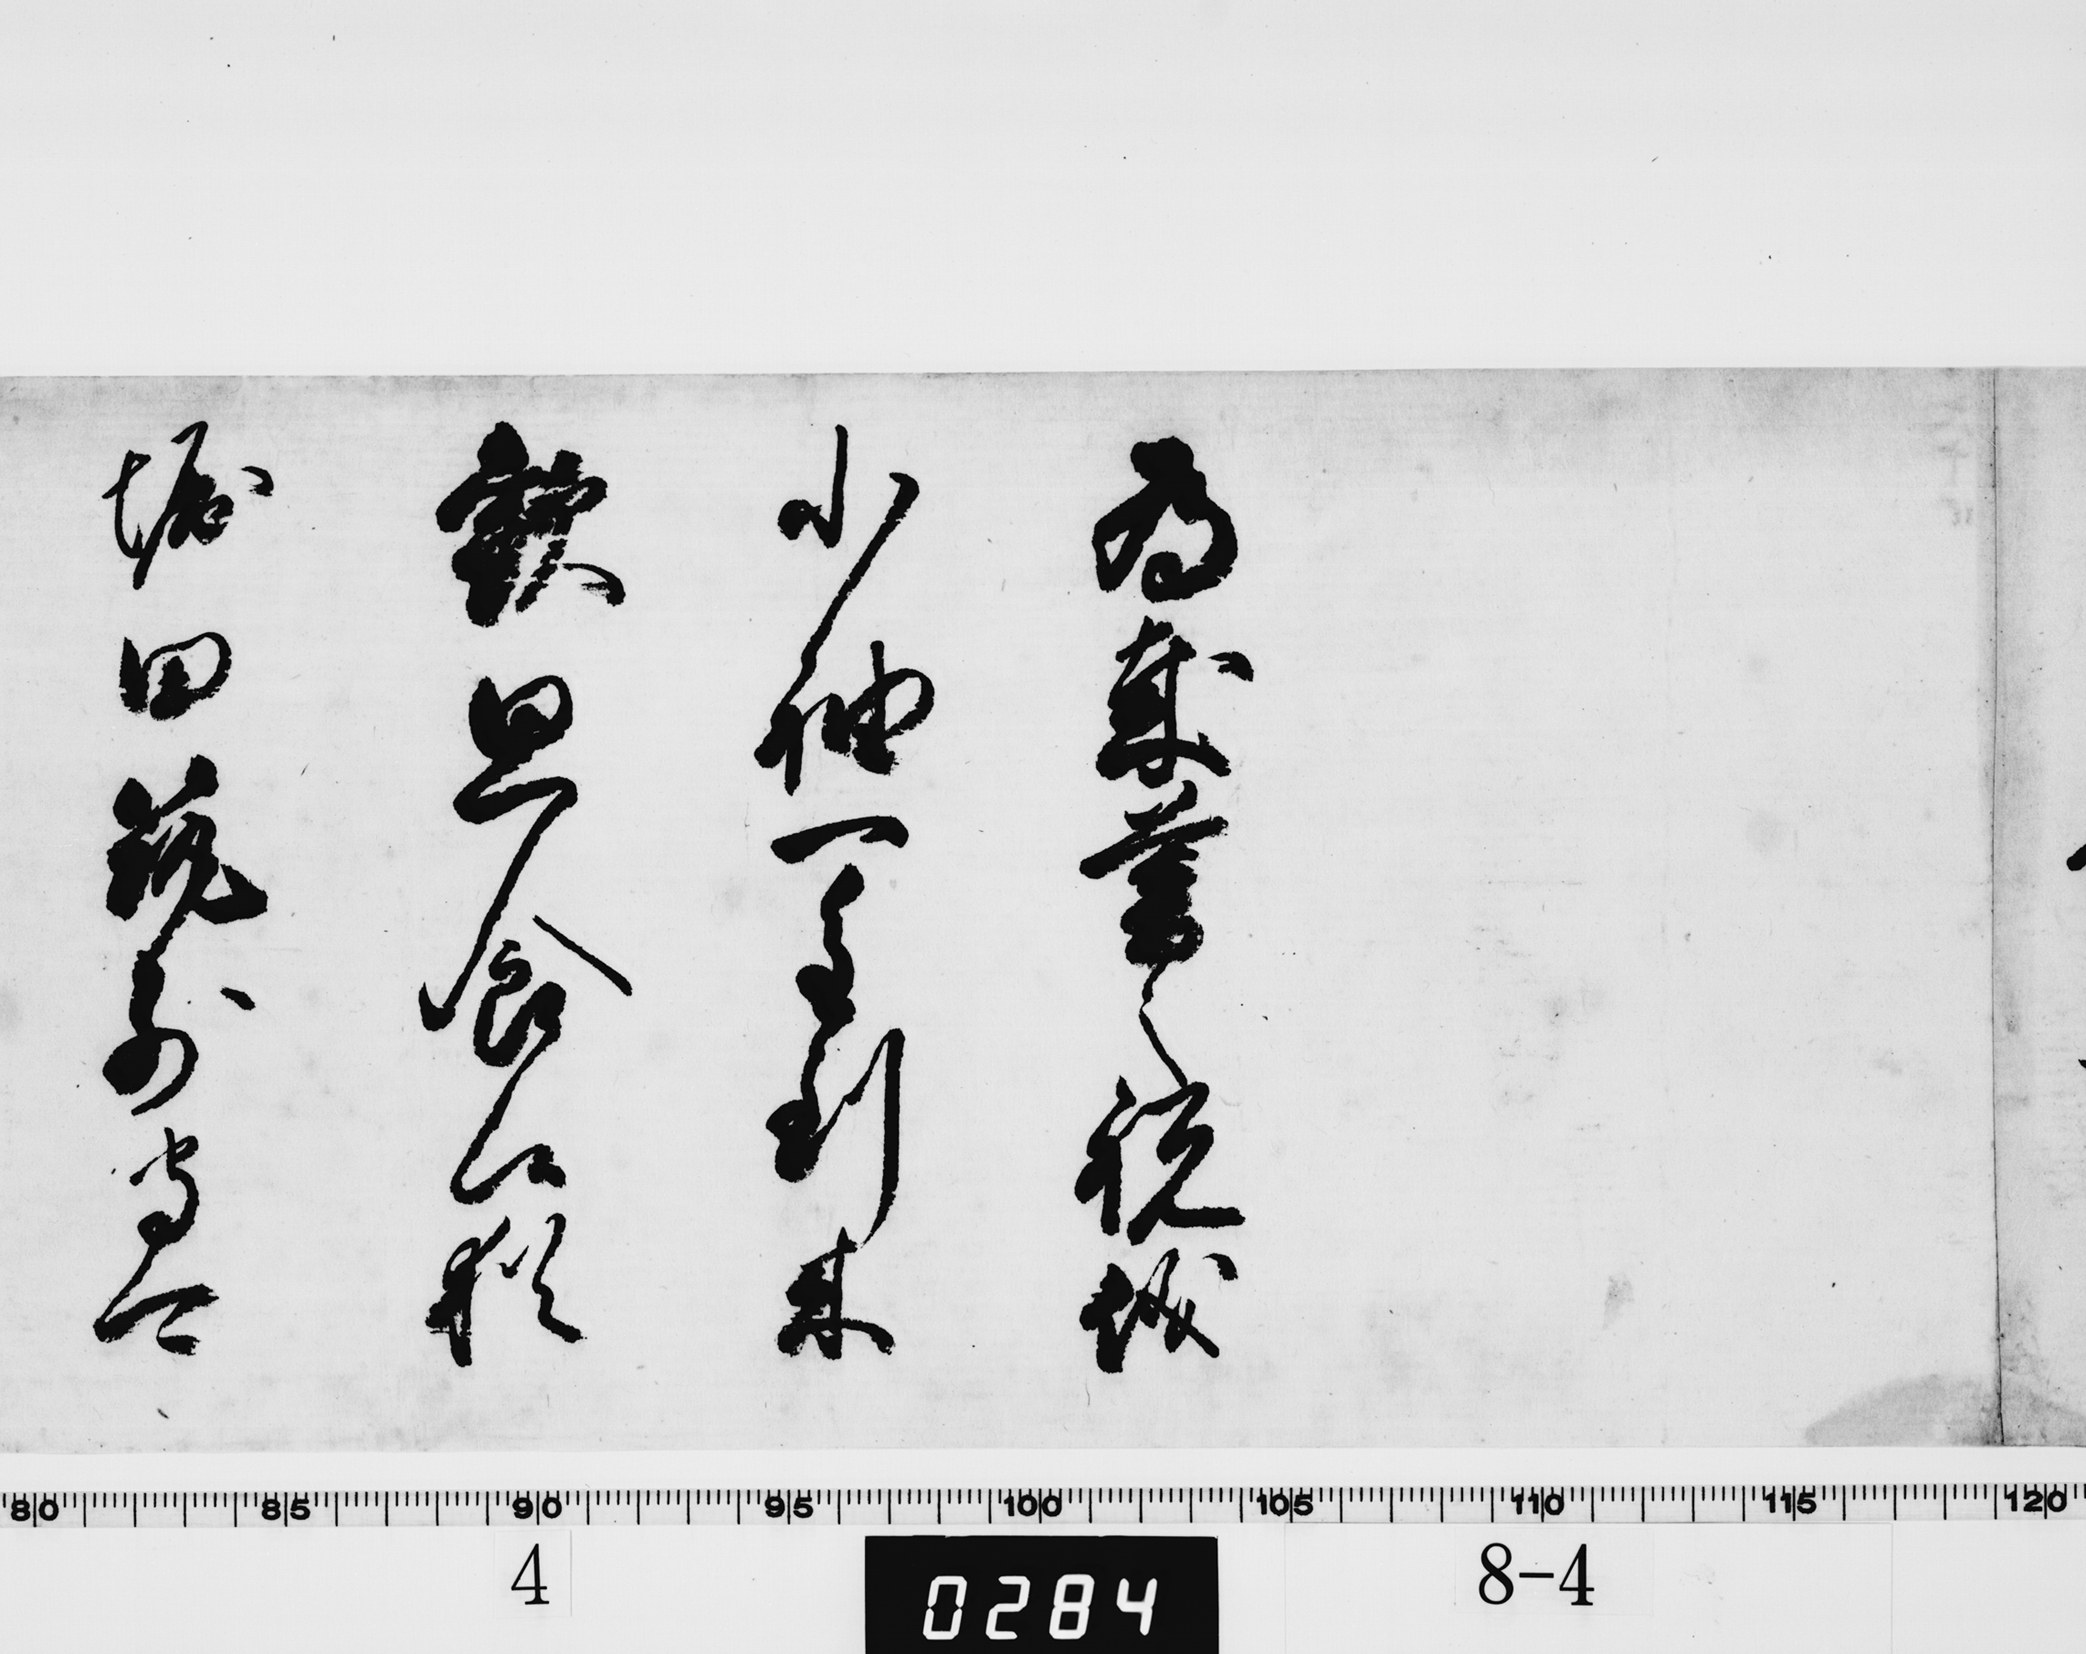 為歳暮之祝儀
小袖一重到来
歓思食候猶
堀田筑前守可
80 85 90 95 100 105 110 115 120
4
0284
8-4